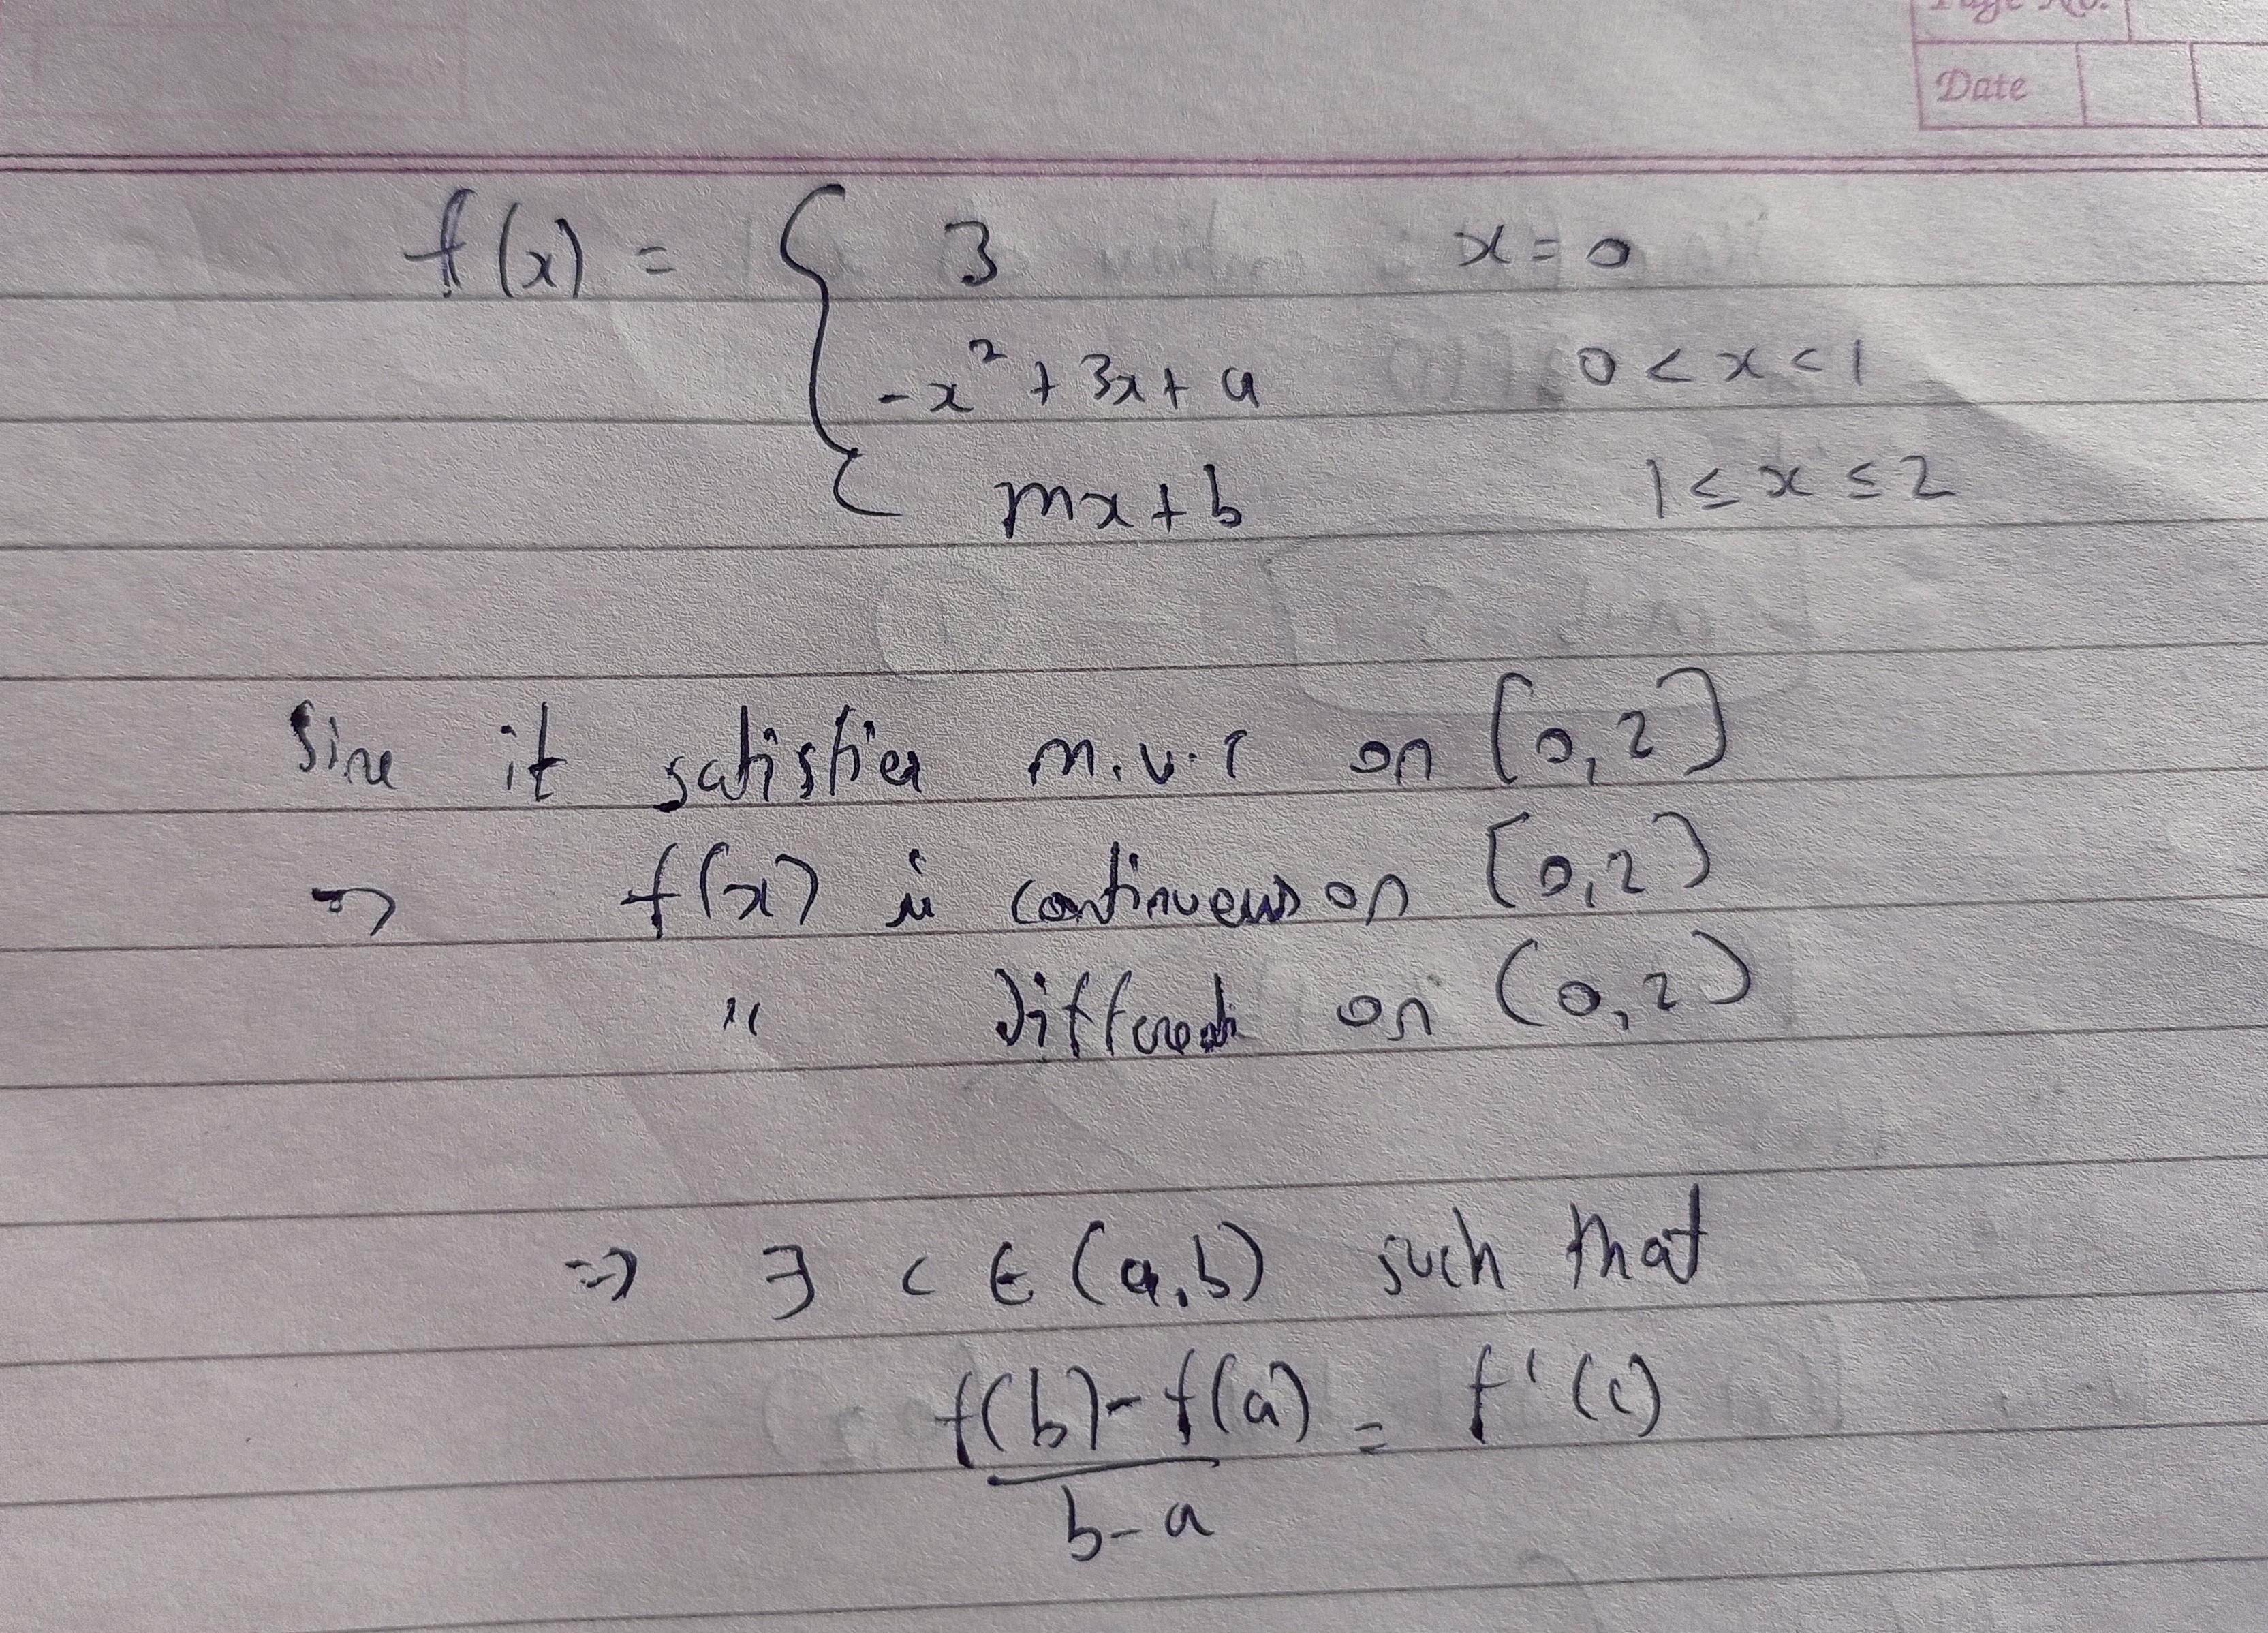 Page No.
Date
f(x) = { 3 x = 0
-x² + 3x + a 0 < x < 1
mx + b 1 ≤ x ≤ 2
Sine it satisfies m.v.T on [0, 2]
⇒ f(x) is continueus on [0, 2]
" on (0, 2)
⇒ ∃ c ∈ (a, b) such that
f(b) - f(a) = f'(c)
b - a